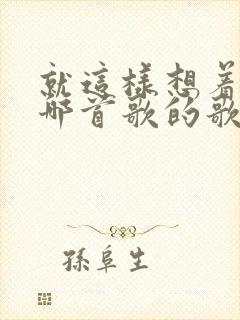 就這樣想着
哪首歌的歌
孫阜生